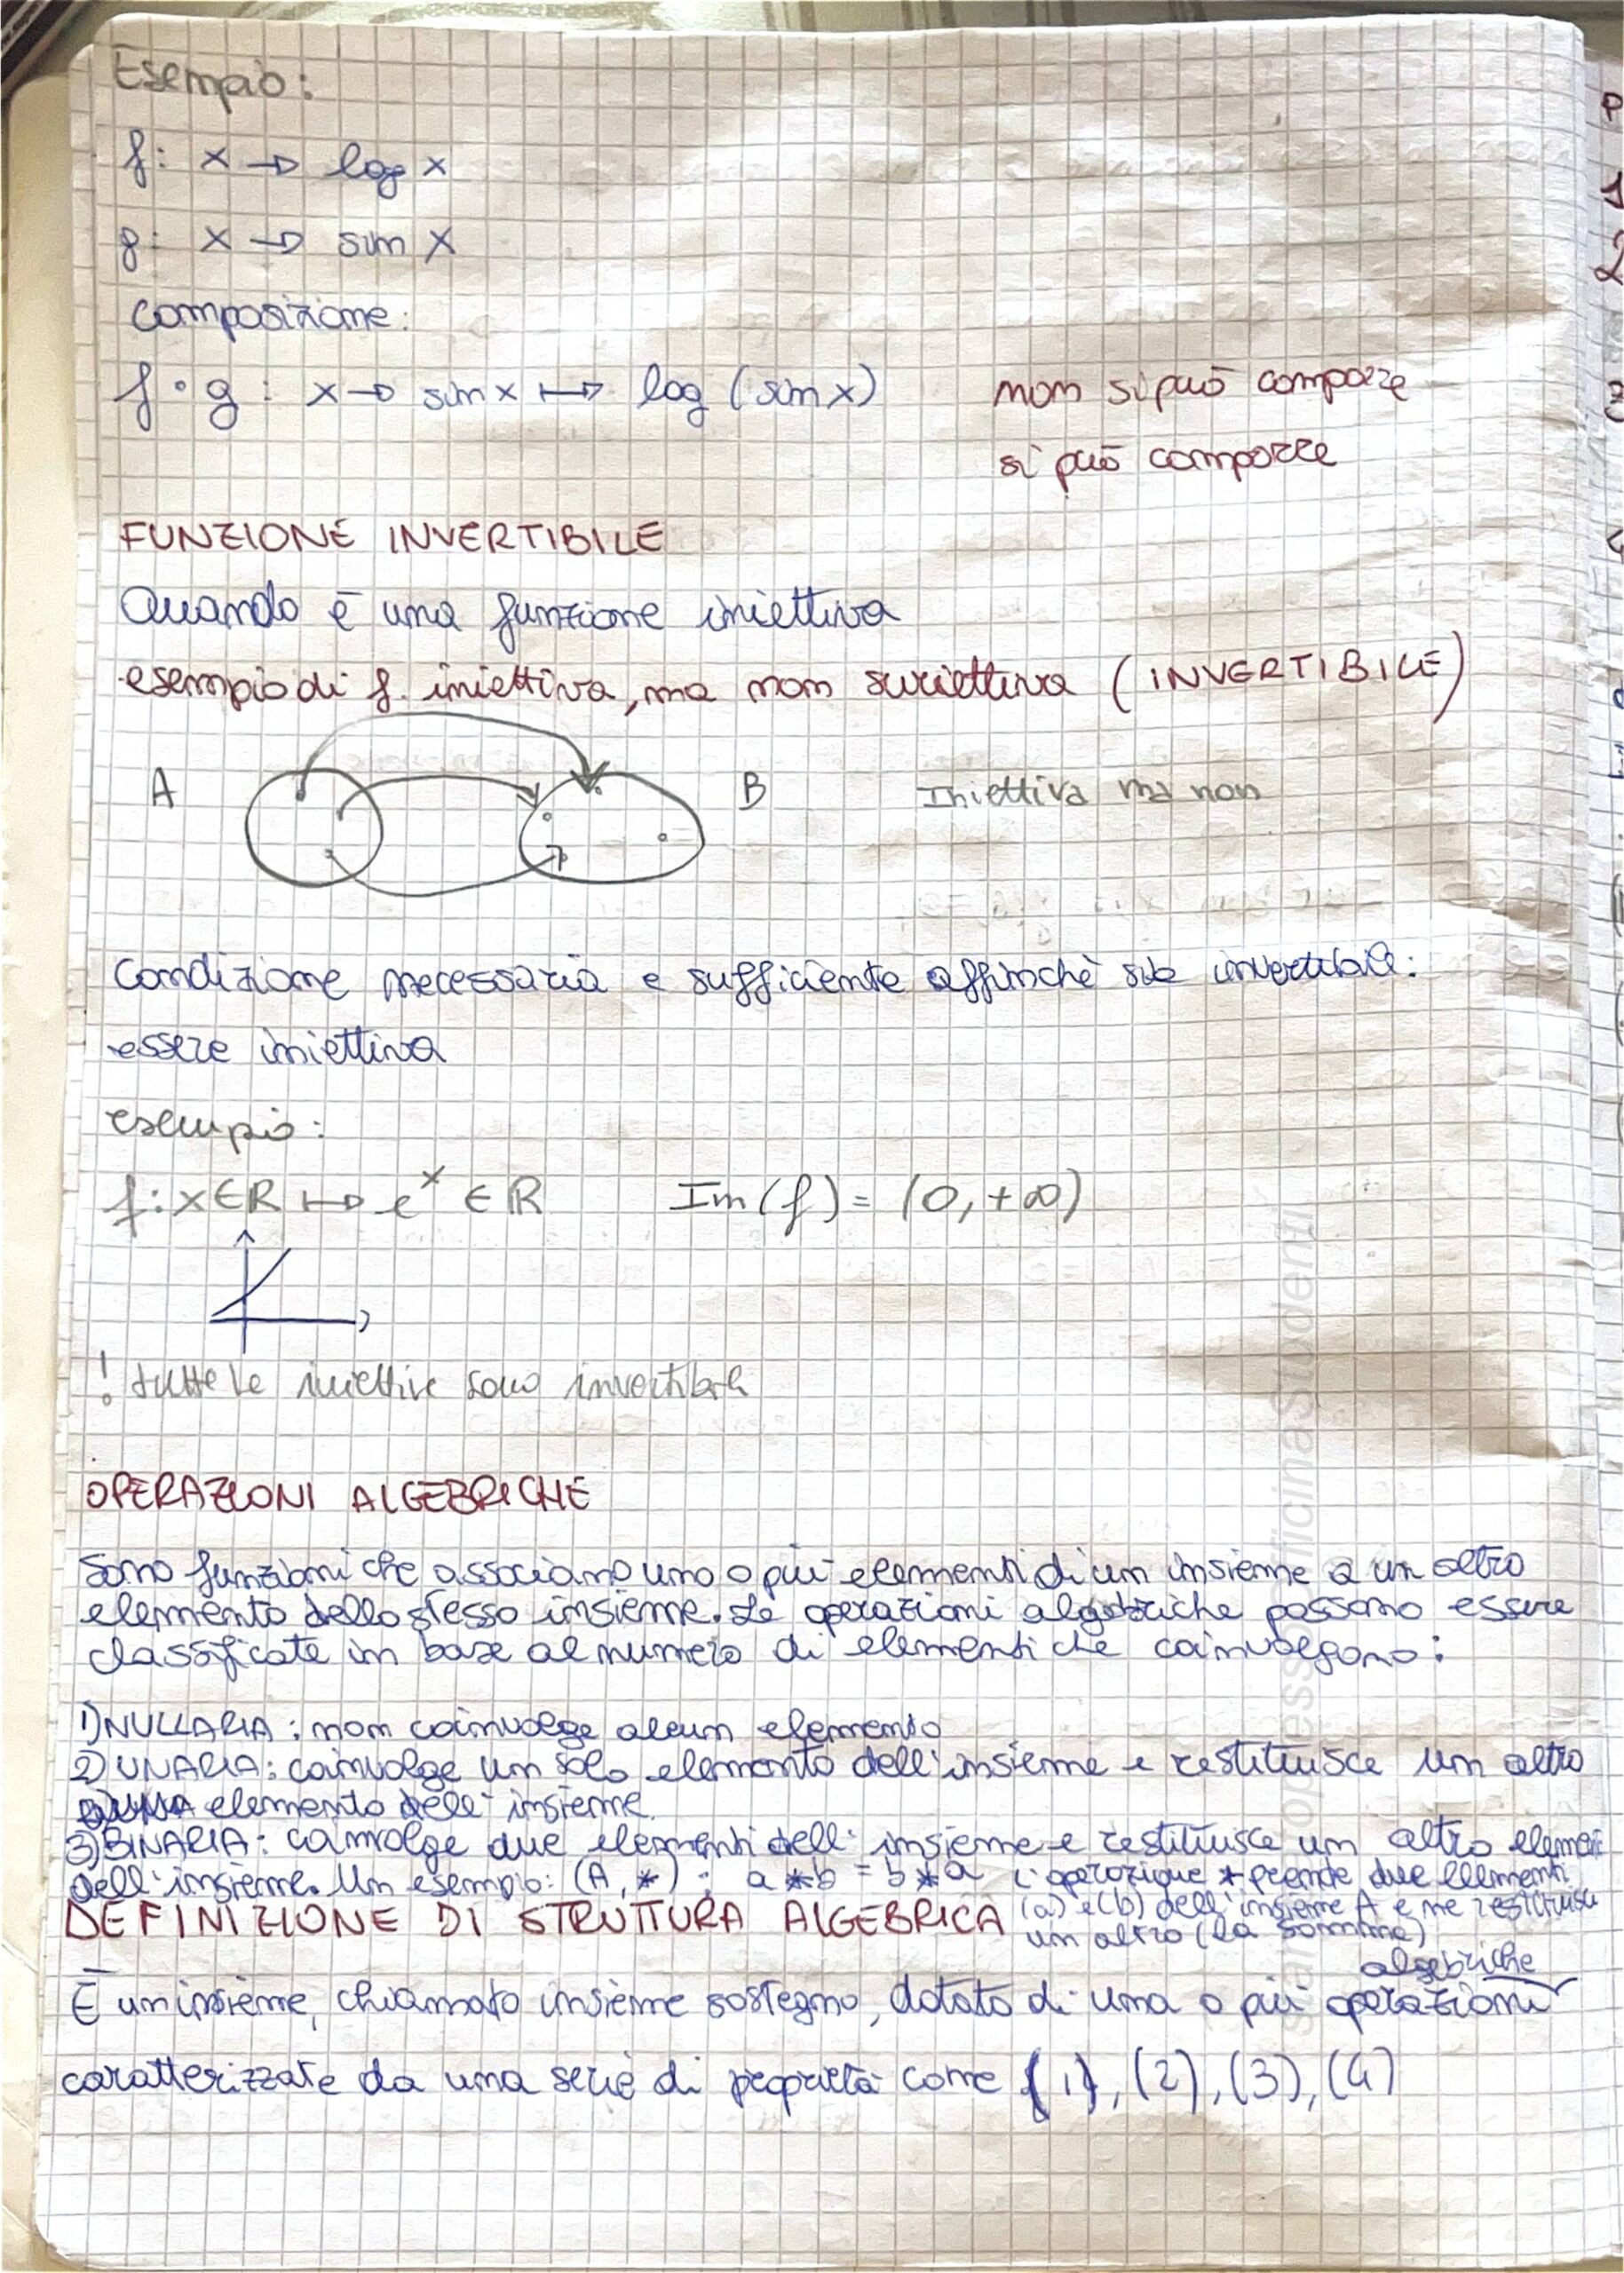 Esempio:
f: x → log x
g: x → sin x
composizione:
f ∘ g : x → sin x ↦ log (sin x) non si può comporre
si può comporre
FUNZIONE INVERTIBILE
Quando è una funzione iniettiva
esempio di f. iniettiva, ma non suriettiva (INVERTIBILE)
A B Iniettiva ma non
Condizione necessaria e sufficiente affinchè sia invertibile:
essere iniettiva
esempio:
f: x ∈ R ↦ eˣ ∈ R Im(f) = (0, +∞)
! tutte le iniettive sono invertibili
OPERAZIONI ALGEBRICHE
Sono funzioni che associano uno o più elementi di un insieme a un altro
elemento dello stesso insieme. Le operazioni algebriche possono essere
classificate in base al numero di elementi che coinvolgono:
1) NULLARIA: non coinvolge alcun elemento
2) UNARIA: coinvolge un solo elemento dell'insieme e restituisce un altro
elemento dell'insieme.
3) BINARIA: coinvolge due elementi dell'insieme e restituisce un altro element
dell'insieme. Un esempio: (A, *) ; a * b = b * a L'operazione * prende due elementi
(a) e (b) dell'insieme A e ne restituisce
un altro (la somma)
DEFINIZIONE DI STRUTTURA ALGEBRICA
algebriche
È un insieme, chiamato insieme sostegno, dotato di una o più operazioni
caratterizzate da una serie di proprietà come (1), (2), (3), (4)